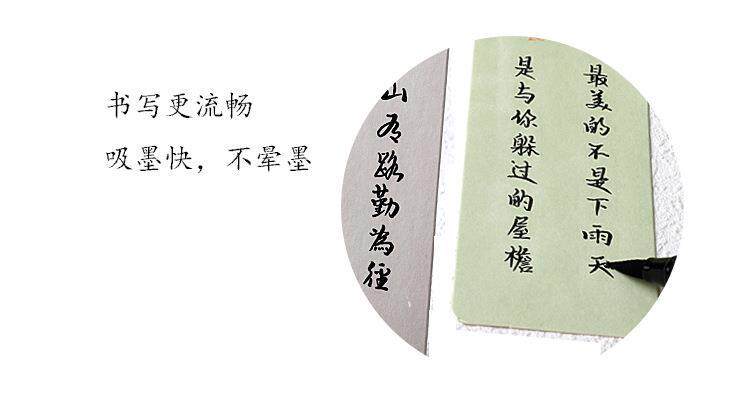 书写更流畅
吸墨快，不晕墨
山有路勤為徑
最美的不是下雨天
是与你躲过的屋檐